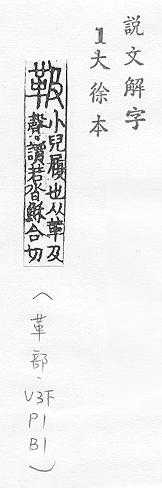 說文解字
1大徐本
靸
小兒履也从革及
聲讀若沓穌合切
(革部·V3下
P1
B1)